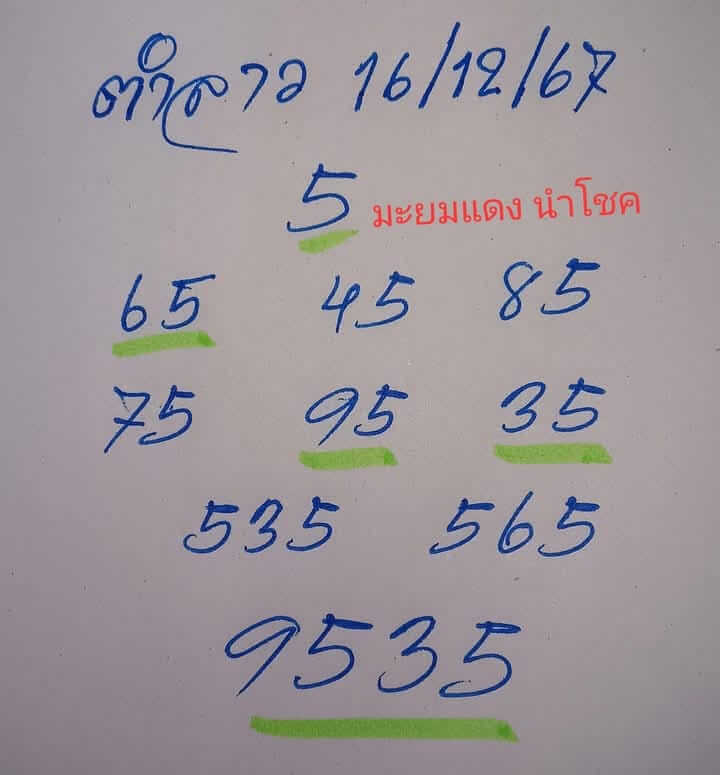 ตำลาว 16/12/67
5 มะยมแดง นำโชค
65 45 85
75 95 35
535 565
9535